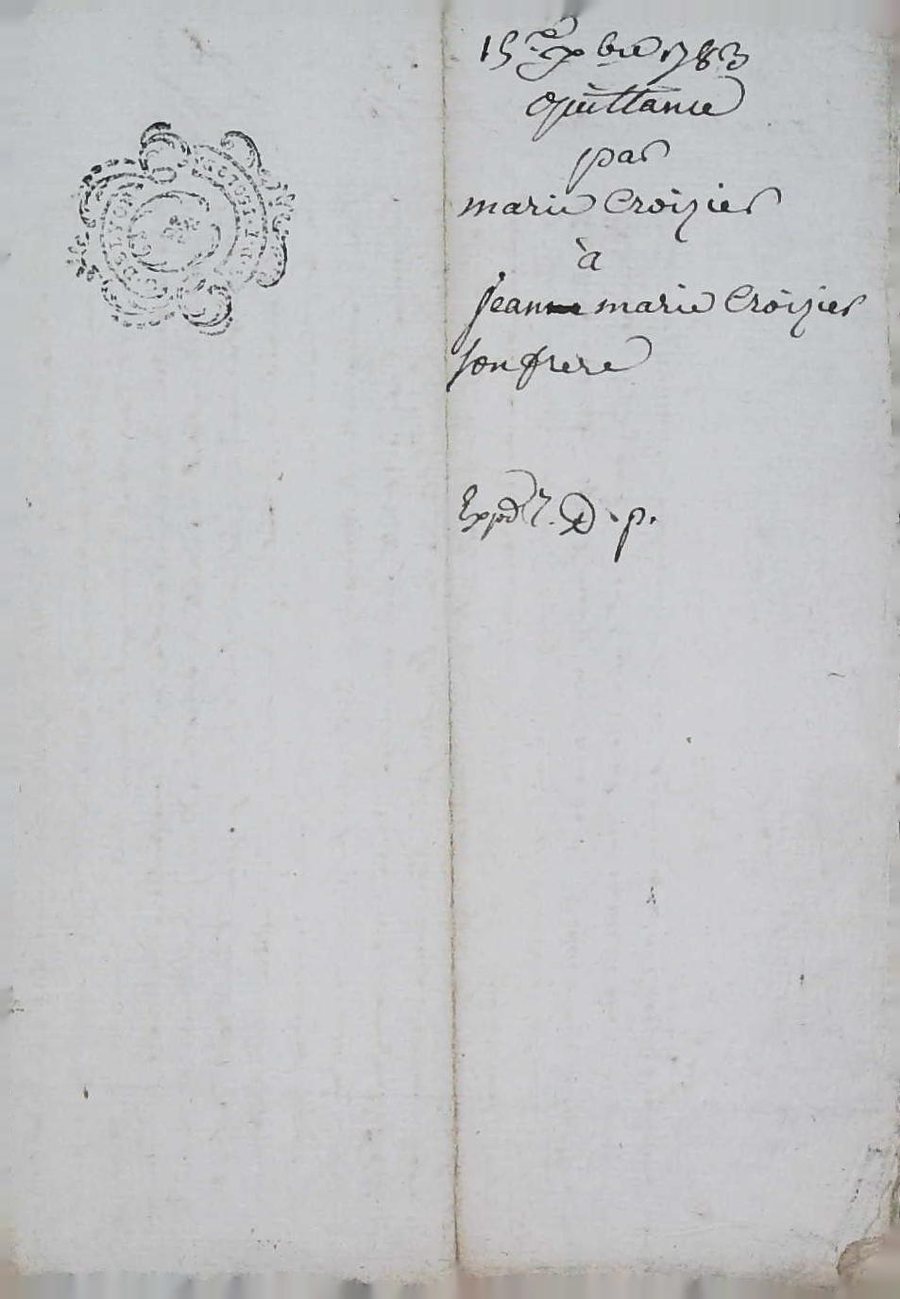 15e xbre 1783
Quittance
par
marie Croizier
à
jean marie Croizier
son frere
Expd. D. p.